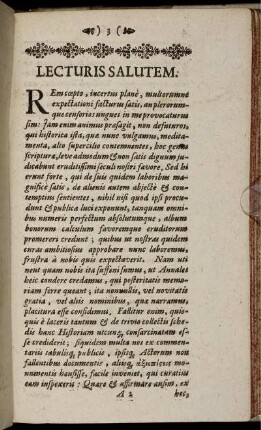 3
LECTURIS SALUTEM.
REm cœpto, incertus planè, multorumne
expectationi facturus satis, an plerorum-
que censorios ungues in me provocaturus
sim: Jam enim animus præsagit, non defuturos,
qui historica ista, quæ nunc vulgamus, medita-
menta, alto supercilio contemnentes, hoc genus
scripturæ, leve admodum & non satis dignum ju-
dicabunt eruditissimi seculi nostri favore. Sed hi
erunt forte, qui de suis quidem laboribus ma-
gnificè satis, de alienis autem abjectè & con-
temptim sentientes, nihil nisi quod ipsi procu-
dunt & publicæ luci exponunt, tanquam omni-
bus numeris perfectum absolutumque, album
bonorum calculum favoremque eruditorum
promereri credunt; quibus ut nostras quidem
curas ambitiosius approbare nunc laboremus,
frustra à nobis quis expectaverit. Nam uti
nent quam nobis ita ut Annales
heic condere credamus, qui posteritatis memo-
riam ferre queant; ita nonnullis, vel novitatis
gratia, vel aliis nominibus, quæ narramus,
placitura esse confidimus. Fallitur enim, quis-
quis è laceris tantum & de trivio collectis sche-
dis hanc Historiam utcunq; consarcinatam es-
se crediderit; siquidem multa nos ex commen-
tariis tabulisq; publicis, ipsisq; Actorum non
fallentibus documentis, aliisq;
monumentis hausisse, facile inveniet, qui curatius
eam inspexerit: Quare & affirmare ausim, ex
A 2 hoc,